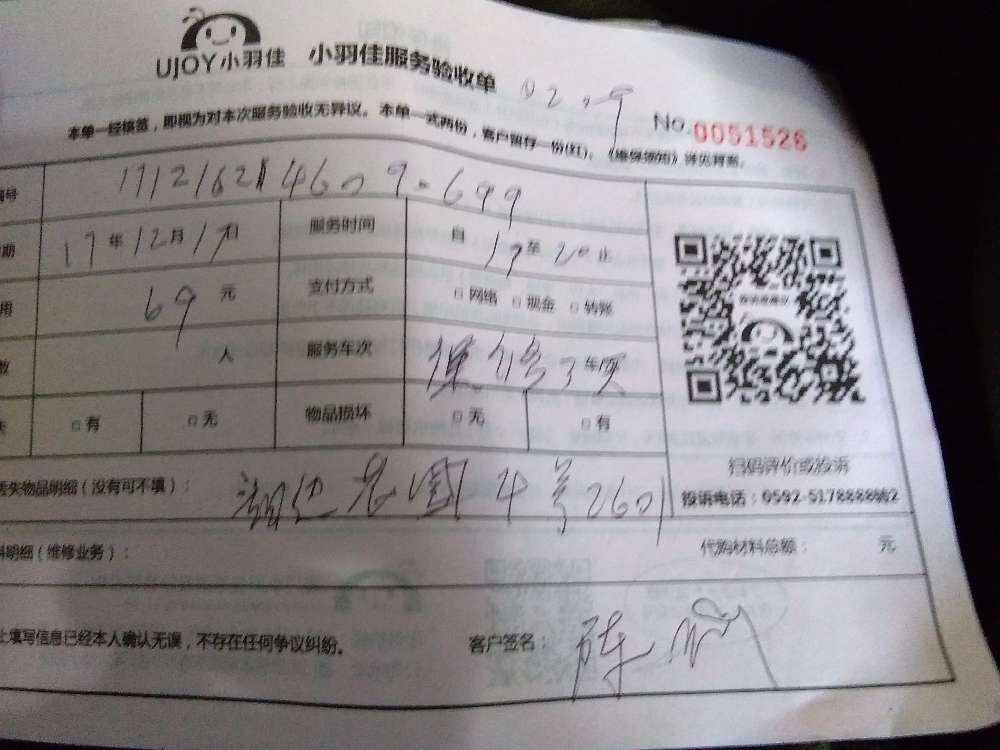 UJOY小羽佳 小羽佳服务验收单
No.0051526
本单一经核签，即视为对本次服务验收无异议。本单一式两份，客户留存一份(红)。《维保须知》详见背面。
编号
期 17年12月19日 服务时间 自19至20止
用 69元 支付方式 □网络 □现金 □转账
数 人 服务车次 车次
失 □有 □无 物品损坏 □无 □有
扫码评价或投诉
投诉电话：0592-5178888转2
丢失物品明细（没有可不填）： 湖边花园4号2601
料明细（维修业务）： 代购材料总额： 元
上填写信息已经本人确认无误，不存在任何争议纠纷。 客户签名： 陈